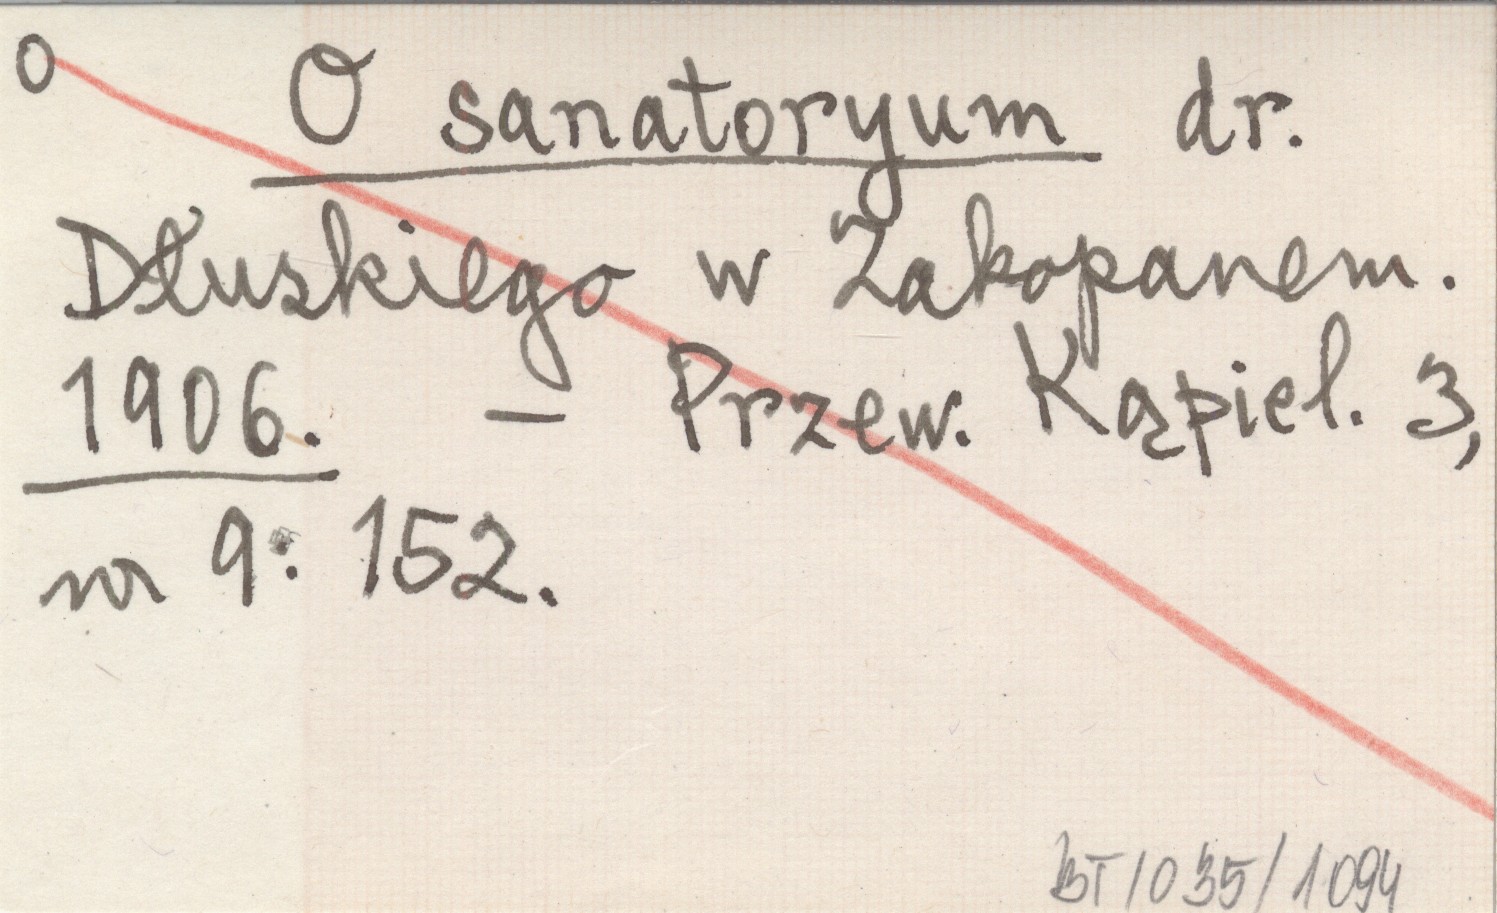 O O sanatoryum dr.
Dłuskiego w Zakopanem.
1906. – Przew. Kąpiel. 3,
nr 9: 152.
BT/035/1094